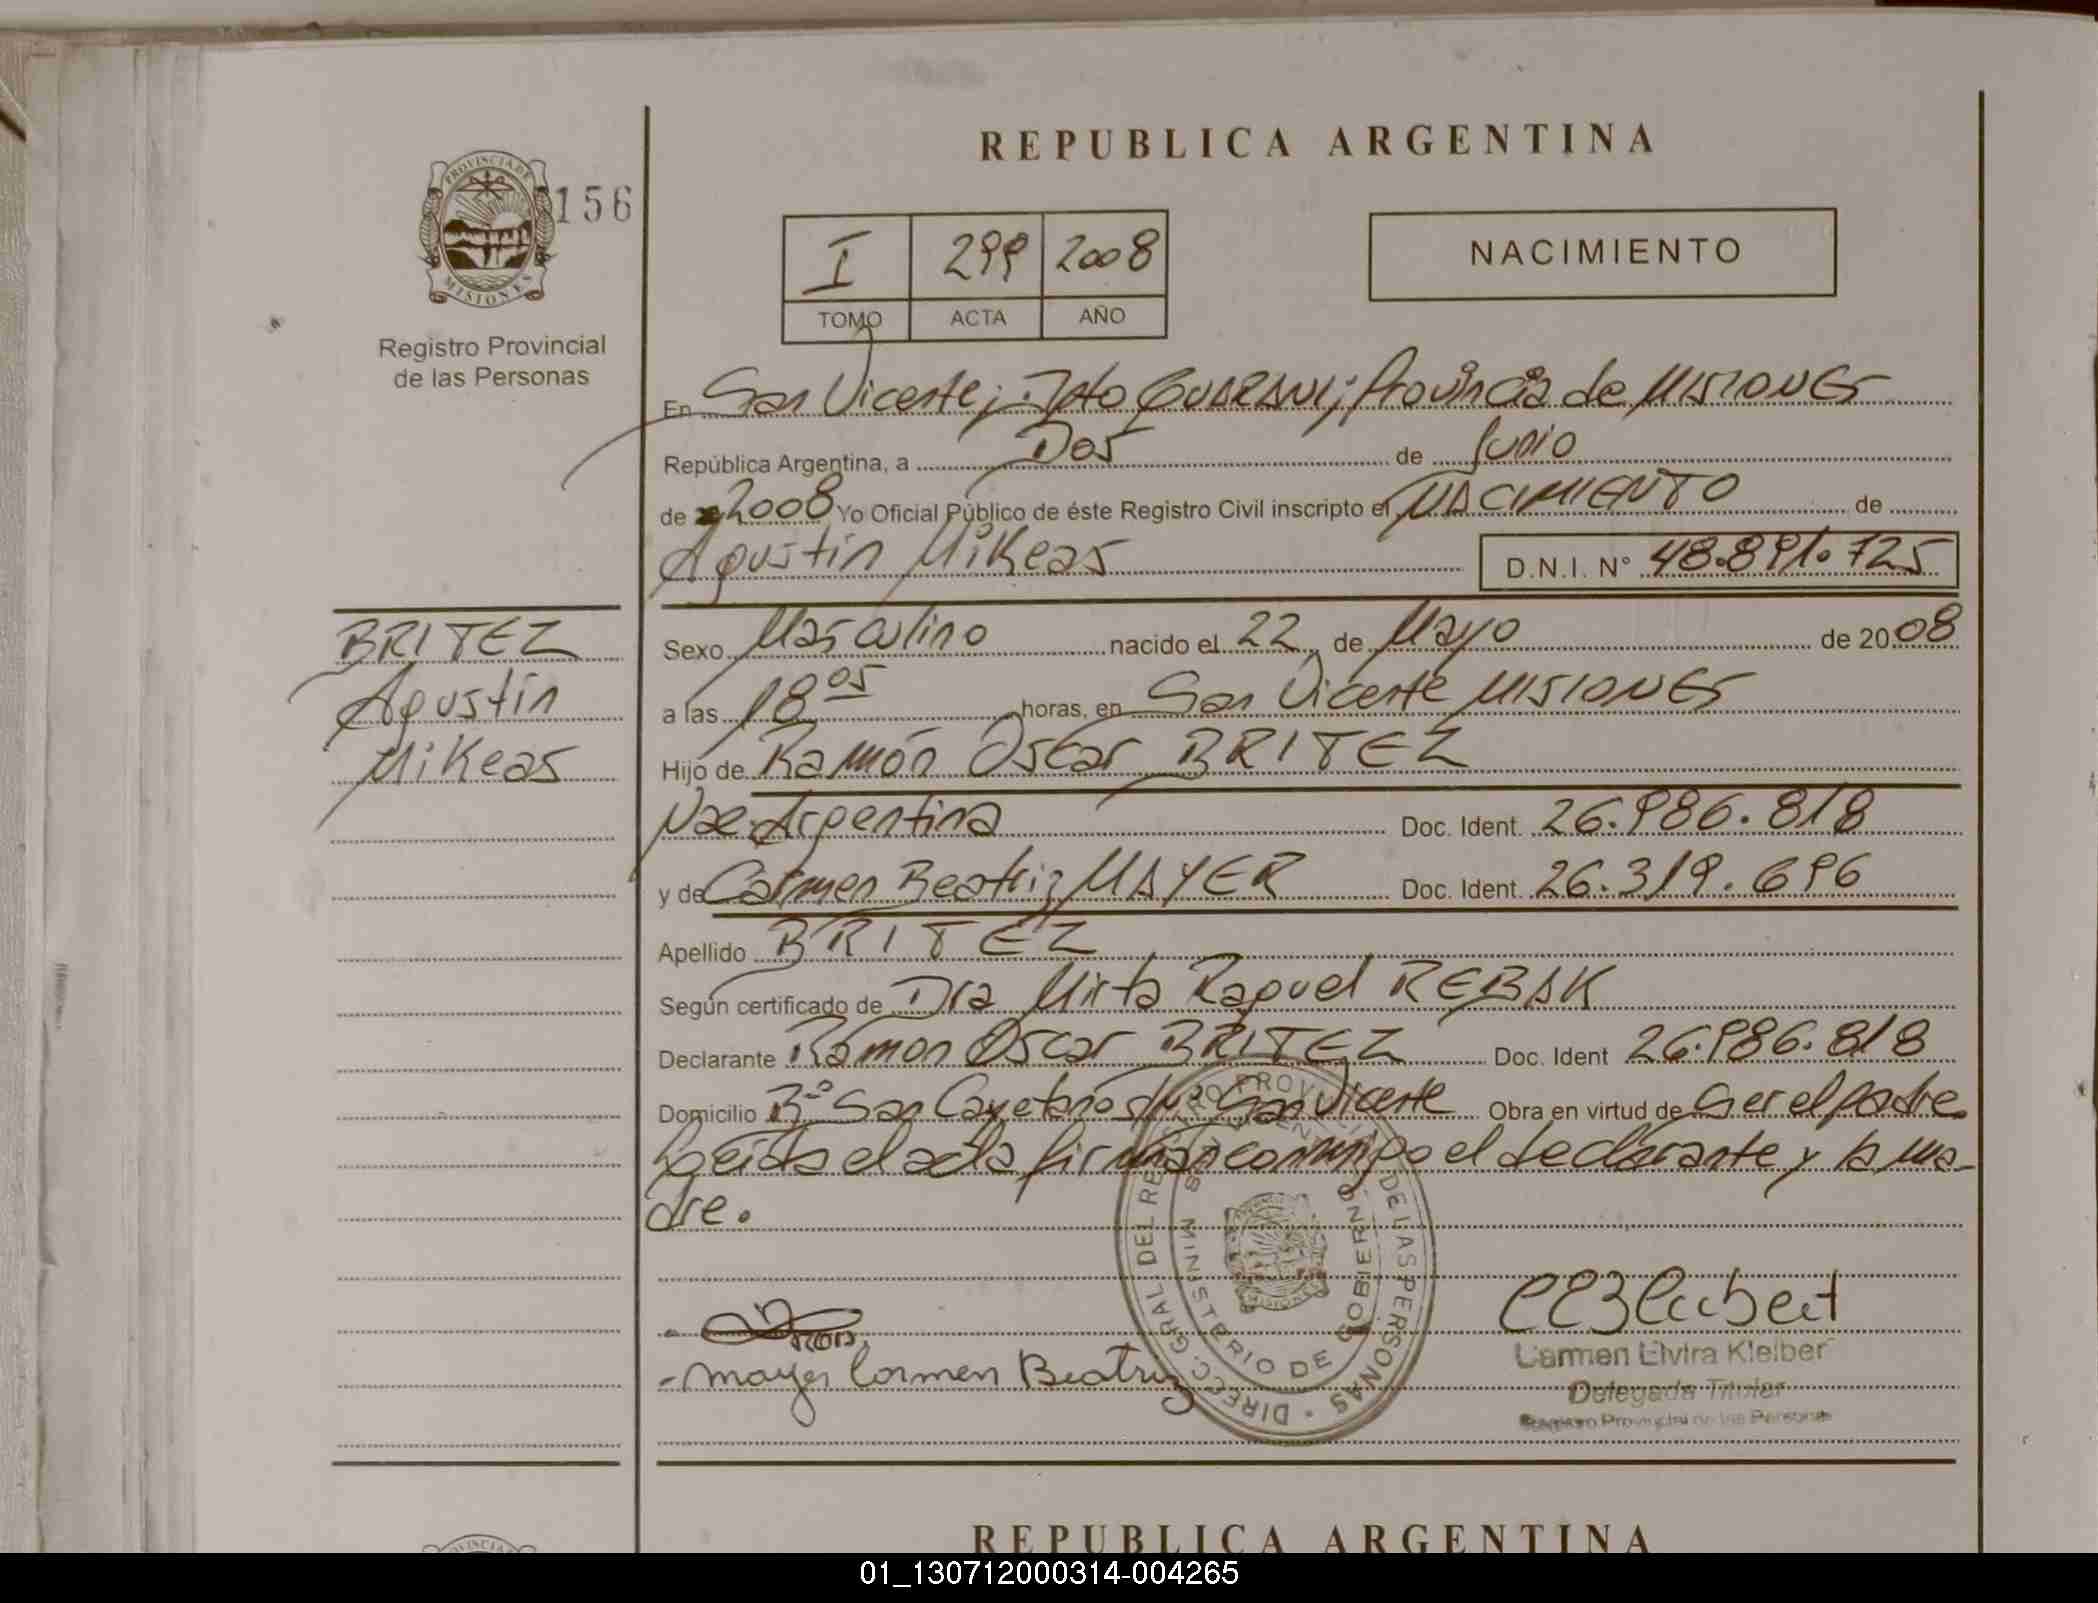 REPUBLICA ARGENTINA
PROVINCIA DE
MISIONES
156
Registro Provincial
de las Personas
I 299 2008
TOMO ACTA AÑO
NACIMIENTO
En San Vicente; Dpto GUARANI; Provincia de MISIONES
República Argentina, a Dos de Junio
de 2008 Yo Oficial Público de éste Registro Civil inscripto el NACIMIENTO de
Agustín Mikeas D.N.I. N° 48.891.725
BRITEZ
Agustín
Mikeas
Sexo Masculino nacido el 22 de Mayo de 2008
a las 18 05 horas, en San Vicente MISIONES
Hijo de Ramón Oscar BRITEZ
Nac. Argentina Doc. Ident. 26.986.818
y de Carmen Beatriz MAYER Doc. Ident. 26.319.696
Apellido BRITEZ
Según certificado de Dra Mirta Raquel REBAK
Declarante Ramon Oscar BRITEZ Doc. Ident 26.986.818
Domicilio Bº San Cayetano San Vicente Obra en virtud de Ser el padre
Leída el acta firman conmigo el declarante y la ma-
dre.
DIRECC. GRAL DEL REGISTRO PROVINCIAL DE LAS PERSONAS
MINISTERIO DE GOBIERNO
MISIONES
-Mayer Carmen Beatriz
Carmen Elvira Kleiber
Delegada Titular
Registro Provincial de las Personas
REPUBLICA ARGENTINA
01_130712000314-004265